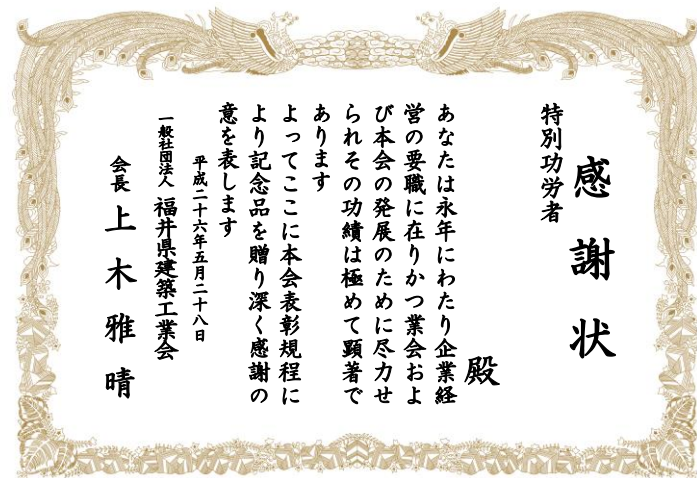 感謝状
特別功労者
殿
あなたは永年にわたり企業経
営の要職に在りかつ業会およ
び本会の発展のために尽力せ
られその功績は極めて顕著で
あります
よってここに本会表彰規程に
より記念品を贈り深く感謝の
意を表します
平成二十六年五月二十八日
一般社団法人 福井県建築工業会
会長 上木雅晴